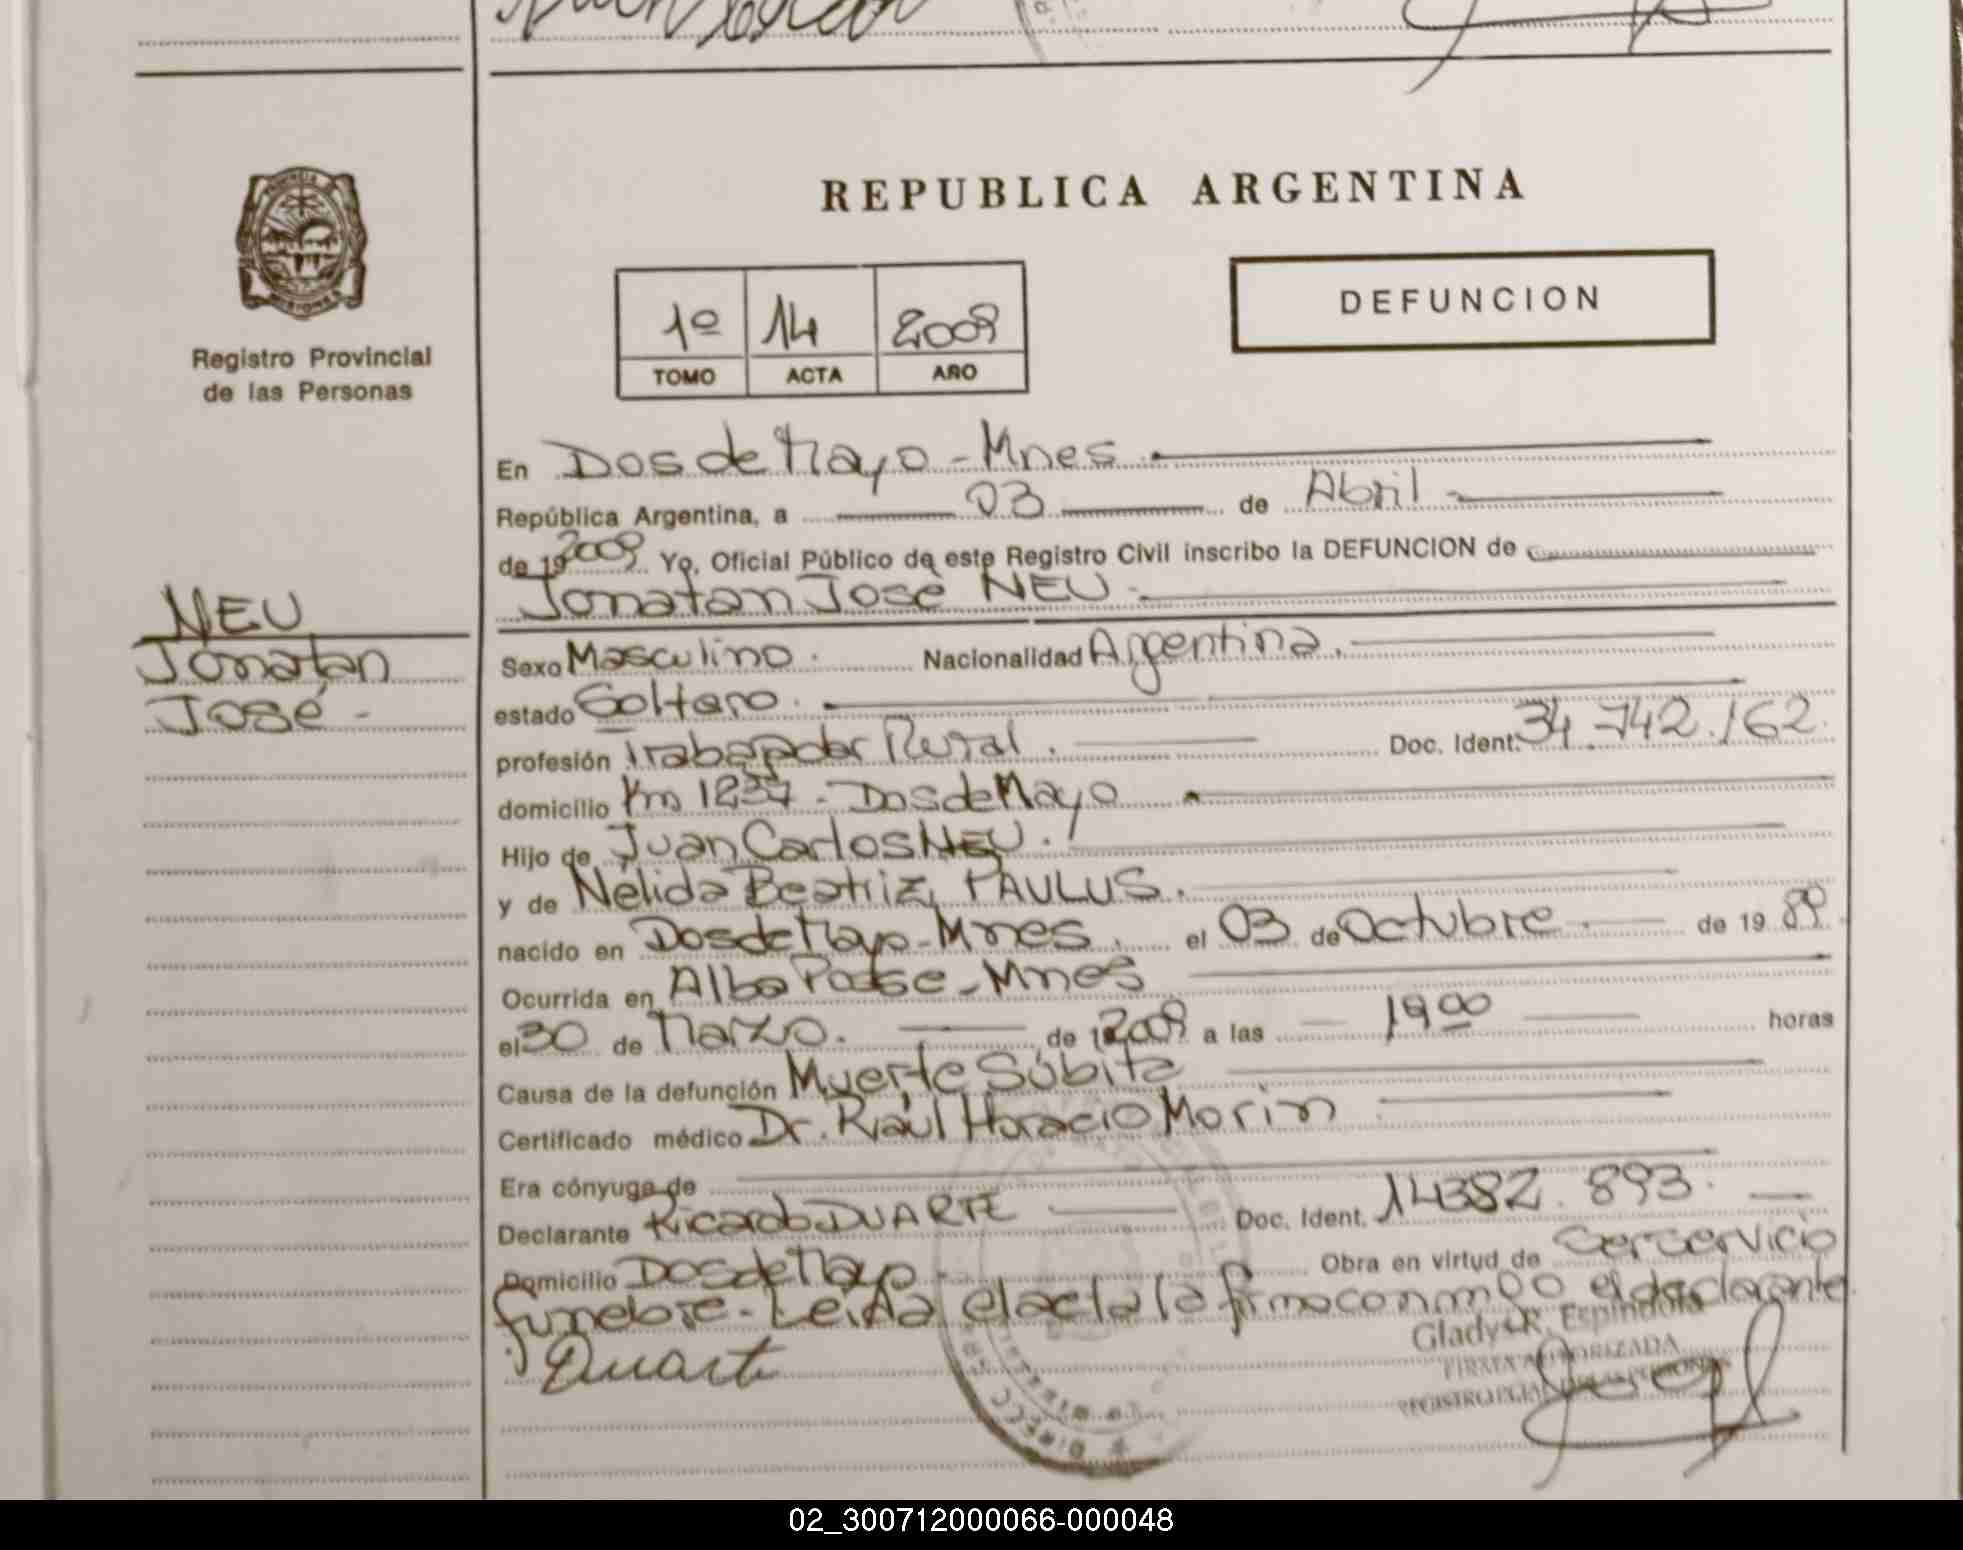 REPUBLICA ARGENTINA
Registro Provincial
de las Personas
1º 14 2009
TOMO ACTA AÑO
DEFUNCION
En Dos de Mayo - Mnes.
República Argentina, a 03 de Abril
de 19 2009 Yo, Oficial Público de este Registro Civil inscribo la DEFUNCION de
Jonatan José NEU
NEU
Jonatan
José -
Sexo Masculino. Nacionalidad Argentina.
estado Soltero.
profesión Trabajador Rural. Doc. Ident. 34.742.162.
domicilio Km 1237 - Dos de Mayo
Hijo de Juan Carlos NEU.
y de Nélida Beatriz PAULUS.
nacido en Dos de Mayo - Mnes. el 03 de Octubre de 19 89
Ocurrida en Alba Posse - Mnes
el 30 de Marzo. de 1 2009 a las 19 00 horas
Causa de la defunción Muerte Súbita
Certificado médico Dr. Raúl Horacio Morim
Era cónyuge de
Declarante Ricardo DUARTE Doc. Ident. 14382.893.
Domicilio Dos de Mayo - Obra en virtud de ser servicio
funebre - Leída el acta la firma conmigo el declarante
Duarte
Gladys R. Espindola
FIRMA AUTORIZADA
REGISTRO PCIAL DE LAS PERSONAS
02_300712000066-000048